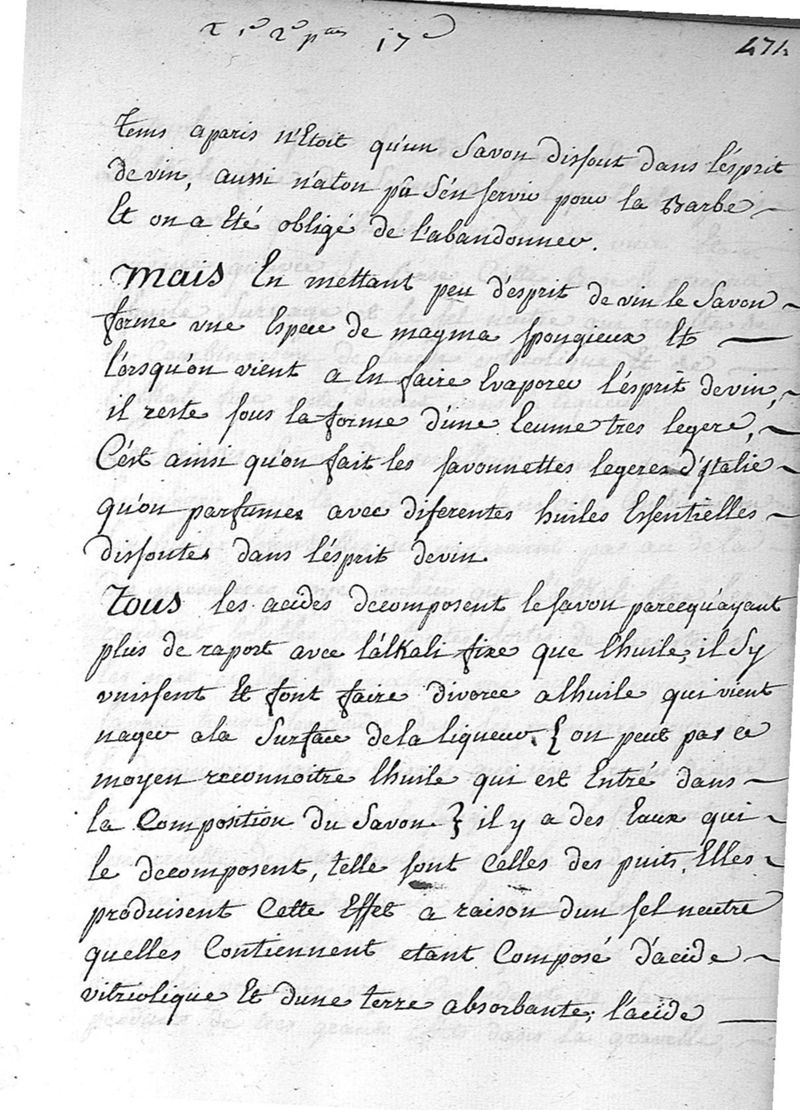 t 1er 2e pas 17e
474
tems aparis n'Etoit qu'un Savon dissout dans l'ésprit
de vin, aussi n'aton pû s'én servir pour la Barbe
Et on a Eté obligé de l'abandonner.
mais En mettant peu d'esprit de vin le Savon
forme une Espece de magma spongieux Et
lórsqu'ón vient a En faire Evaporer l'ésprit devin,
il reste sous la forme d'une Ecume tres legere,
C'ést ainsi qu'on fait les savonnettes legeres d'jtalie
qu'on parfumes avec diferentes huiles Essentielles
dissoutes dans l'ésprit devin
Tous les acides decomposent le savon parcequ'ayant
plus de raport avec l'álkali fixe que l'huile, il Sy
unissent Et font faire divorce alhuile qui vient
nager a la Surface de la liqueur. { on peut par ce
moyen reconnoitre l'huile qui est Entré dans
la Composition du Savon } il y a des Eaux qui
le decomposent, telle sont Celles des puits. Elles
produisent Cette Effet a raison dun sel neutre
quelles Contiennent etant Composé d'acide
vitriolique Et dune terre absorbante, l'acide